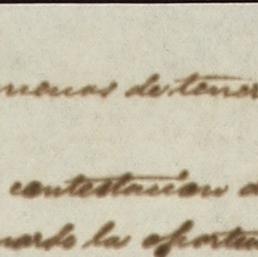 menos de tener
contestacion a
uardo la oportu